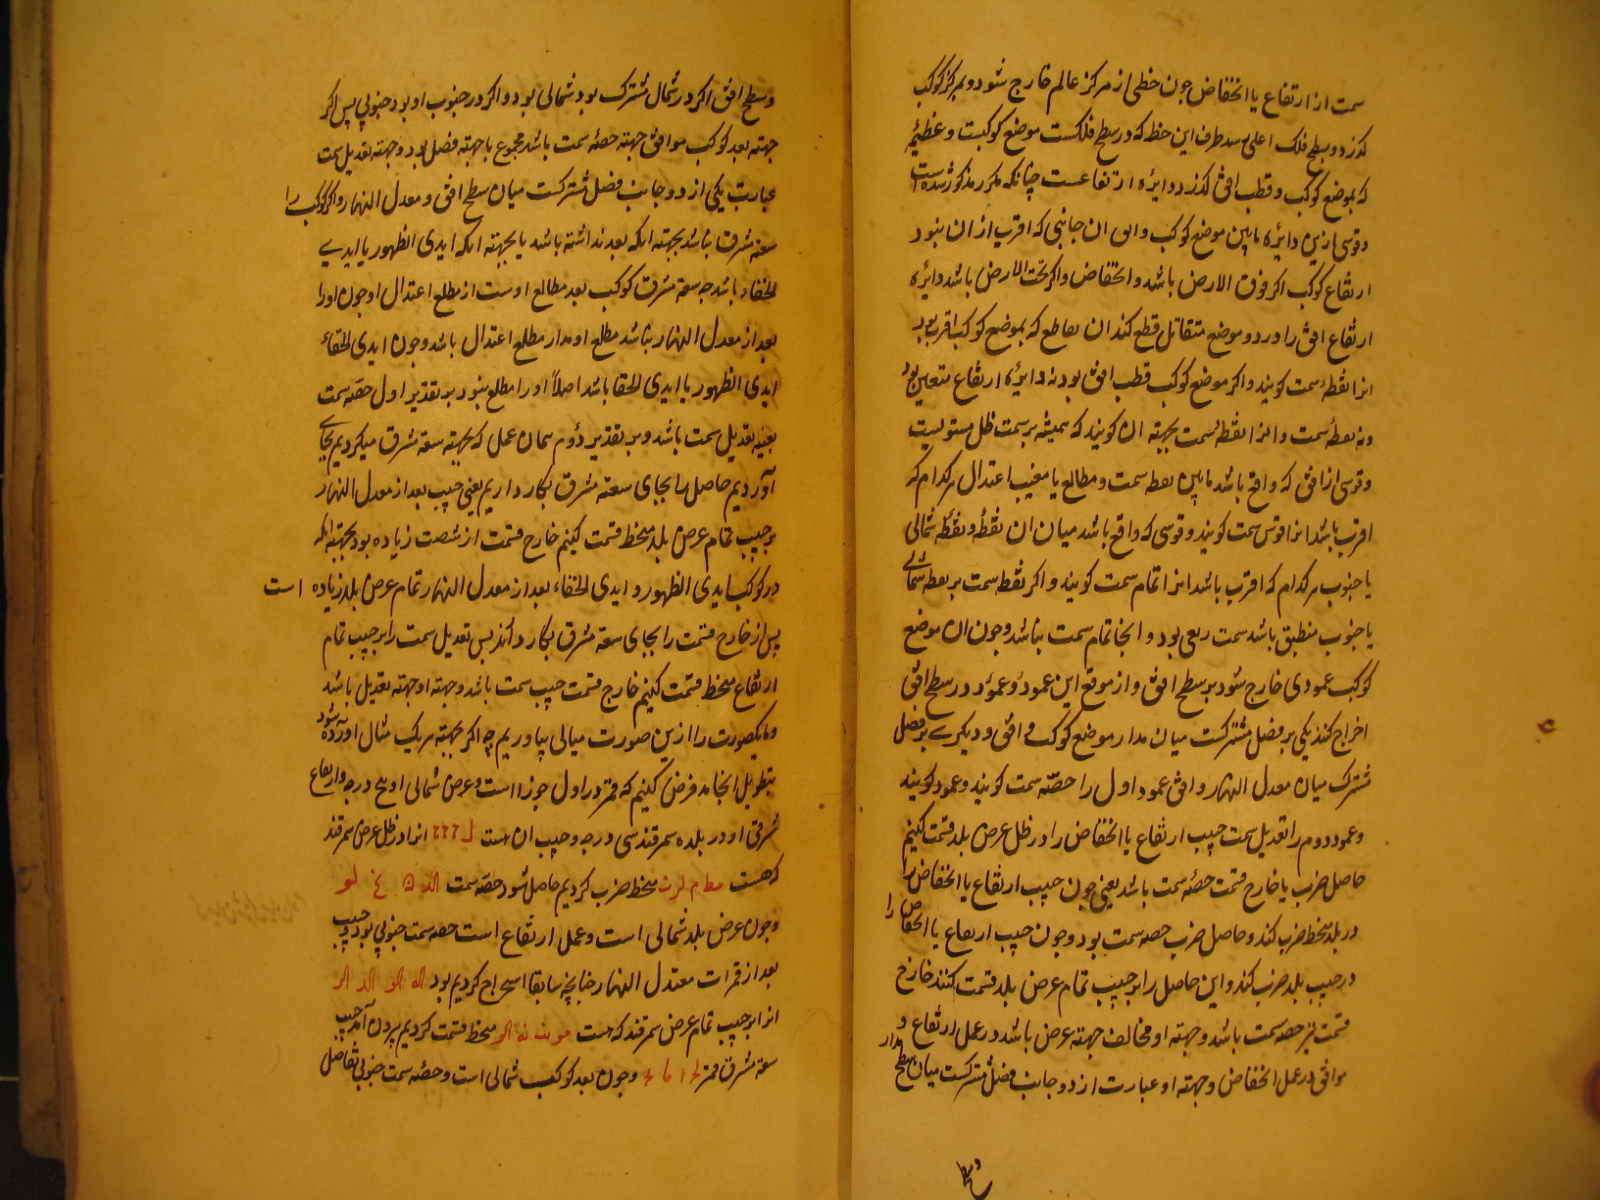 سمت از ارتفاع یا انخفاض جون خطی از مرکز عالم خارج شود و بمرکز کوکب
کذرد و بسطح فلک اعلی رسد طرف این خط که در سطح فلکست موضع کوکبست و عظیمهٔ
که بموضع کوکب و قطب افق کذرد دایره ارتفاعست چنانکه مکرر مذکور شده است
و قوسی ازین دایره مابین موضع کوکب و افق از ان جانبی که اقرب از ان نبود
ارتفاع کوکب اکر فوق الارض باشد و انخفاض و اکر تحت الارض باشد دایره
ارتفاع افق را در دو موضع متقابل قطع کند ان تقاطع که بموضع کوکب اقرب بود
انرا نقطهٔ سمت کویند و اکر موضع کوکب قطب افق بود نه دایره ارتفاع متعین بود
و نه نقطهٔ سمت و انرا نقطهٔ سمت بجهته ان کویند که همیشه بر سمت ظل مستویست
و قوسی از افق که واقع باشد مابین نقطه سمت و مطالع یا مغیب اعتدال هر کدام که
اقرب باشد انرا قوس سمت کویند و قوسی که واقع باشد میان ان نقطه و نقطهٔ شمالی
یا جنوب هر کدام که اقرب باشد انرا تمام سمت کویند و اکر نقطه سمت بر نقطه شمالی
یا جنوب منطبق باشد سمت ربعی بود و انجا تمام سمت نباشد و جون از موضع
کوکب عمودی خارج شود بر سطح افق و از موقع این عمود دو عمود در سطح افق
اخراج کنند یکی بر فصل مشترکست میان مدار موضع کوکب و افق و دیکری بر فصل
مشترک میان معدل النهار و افق عمود اول را حصّه سمت کویند و عمود کویند
و عمود دوم را تعدیل سمت جیب ارتفاع یا انخفاض را در ظل عرض بلد قسمت کنیم
حاصل ضرب یا خارج قسمت حصّه سمت باشد یعنی جون جیب ارتفاع یا انخفاض را
در بلد منحط ضرب کند و حاصل ضرب حصه سمت بود و جون جیب ارتفاع یا انخفاض را
در جیب بلد ضرب کند و این حاصل را بر جیب تمام عرض بلد قسمت کنند خارج
قسمت نیز حصه سمت باشد و جهته او مخالف جهته عرض باشد در عمل ارتفاع و
موافق در عمل انخفاض و جهته او عبارت از دو جانب فصل مشترکست میان سطح مدار
و سطح
و سطح افق اکر در شمال مشترک بود شمالی بود و اکر در جنوب او بود جنوبی پس اکر
جهته بعد کوکب موافق جهته حصّه سمت باشد مجموع با جهته فضل بود و جهته تعدیل سمت
عبارت یکی از دو جانب فصل مشترکست میان سطح افق و معدل النهار و اکر کوکب را
سعته مشرق نباشد بجهته انکه بعد نداشته باشد یا بجهته انکه ابدی الظهور یا ابدی
الخفاء باشد جه سعته مشرق کوکب بعد مطالع اوست از مطلع اعتدال او جون او را
بعد از معدل النهار نباشد مطلع او مدار مطلع اعتدال باشد و جون ابدی الخفاء
ابدی الظهور یا ابدی الخفا باشد اصلاً او را مطلع نبود بر تقدیر اول حصّه سمت
بعینه تعدیل سمت باشد و بر تقدیر دوم همان عمل که بجهته سعته مشرق میکردیم بجای
آوردیم حاصل را بجای سعته مشرق بکار داریم یعنی جیب بعد از معدل النهار
بر جیب تمام عرض بلد منحط قسمت کنیم خارج قسمت از شصت زیاده بود بجهته انکه
در کوکب ابدی الظهور و ابدی الخفاء بعد از معدل النهار تمام عرض بلد زیاده است
پس از خارج قسمت را بجای سعته مشرق بکار داند پس تعدیل سمت را بر جیب تمام
ارتفاع منحط قسمت کنیم خارج قسمت جیب سمت باشد و جهته او جهته تعدیل باشد
و ما یکصورت را ازین صورت مثالی بیاوریم چه اکر بجهته هر یک مثال آورده شود
بتطویل انجامد فرض کنیم که قمر در اول جوزا است و عرض شمالی او پنج درجه و ارتفاع
شرقی او در بلده سمرقند سی درجه و جیب ان هست ل انرا در ظل عرض سمرقند
که هست منحط ضرب کردیم حاصل شود حصّه سمت
و جون عرض بلد شمالی است و عمل ارتفاع است حصه سمت جنوبی بود و جیب
بعد از قمر از معدل النهار چنانچه سابقا استخراج کردیم بود
انرا بر جیب تمام عرض سمرقند که هست منحط قسمت کردیم بیرون آمد جیب
سعته مشرق قمر و جون بعد کوکب شمالی است و حصّه سمت جنوبی تفاضل